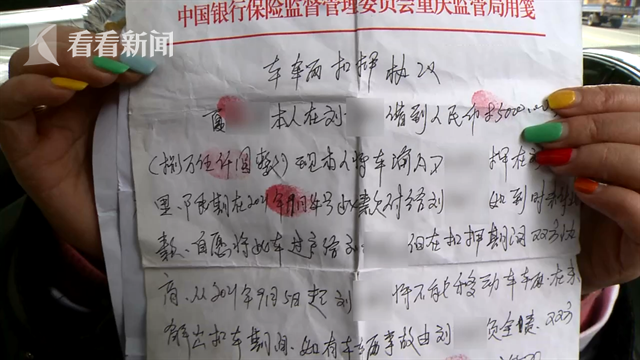 中国银行保险监督管理委员会重庆监管局用笺
看看新闻
车车两扣押协议
夏 本人在刘 借到人民币85000.00
(捌万伍仟圆整) 现本人将车渝A 押在
里、限期在2021年9月4号如数付给刘 如到时未付
款、自愿将如车过户给刘 但在扣押期间双方协
商、从2021年9月5日起刘 将有权变动车车辆、在未
解出扣车期间、如有车辆事故由刘 负全责、双方